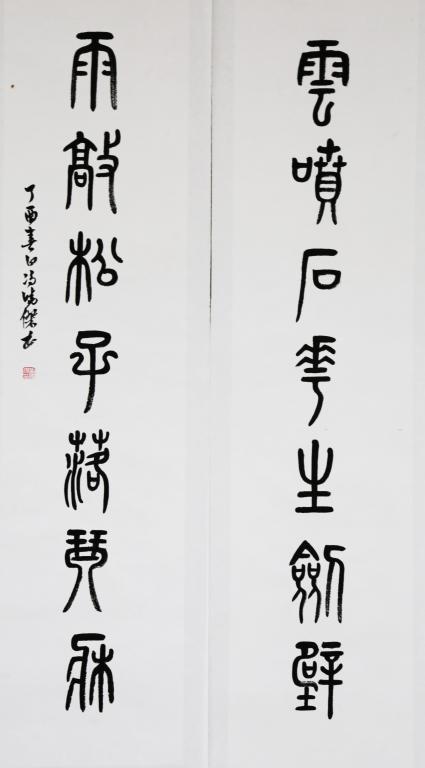 雲噴石花生劍壁
雨敲松子落琴牀
丁酉春日馮鴻傑書